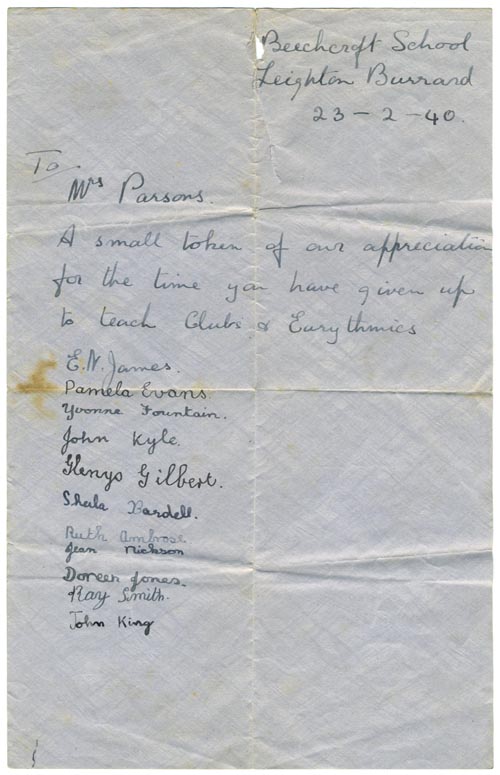 Beechcroft School
Leighton Buzzard
23 - 2 - 40.
To.
Mrs Parsons.
A small token of our appreciation
for the time you have given up
to teach Clubs & Eurythmics
E. N. James.
Pamela Evans
Yvonne Fountain.
John Kyle.
Glenys Gilbert.
Sheila Bardell.
Ruth Ambrose
Jean Nickson
Doreen Jones.
Ray Smith.
John King